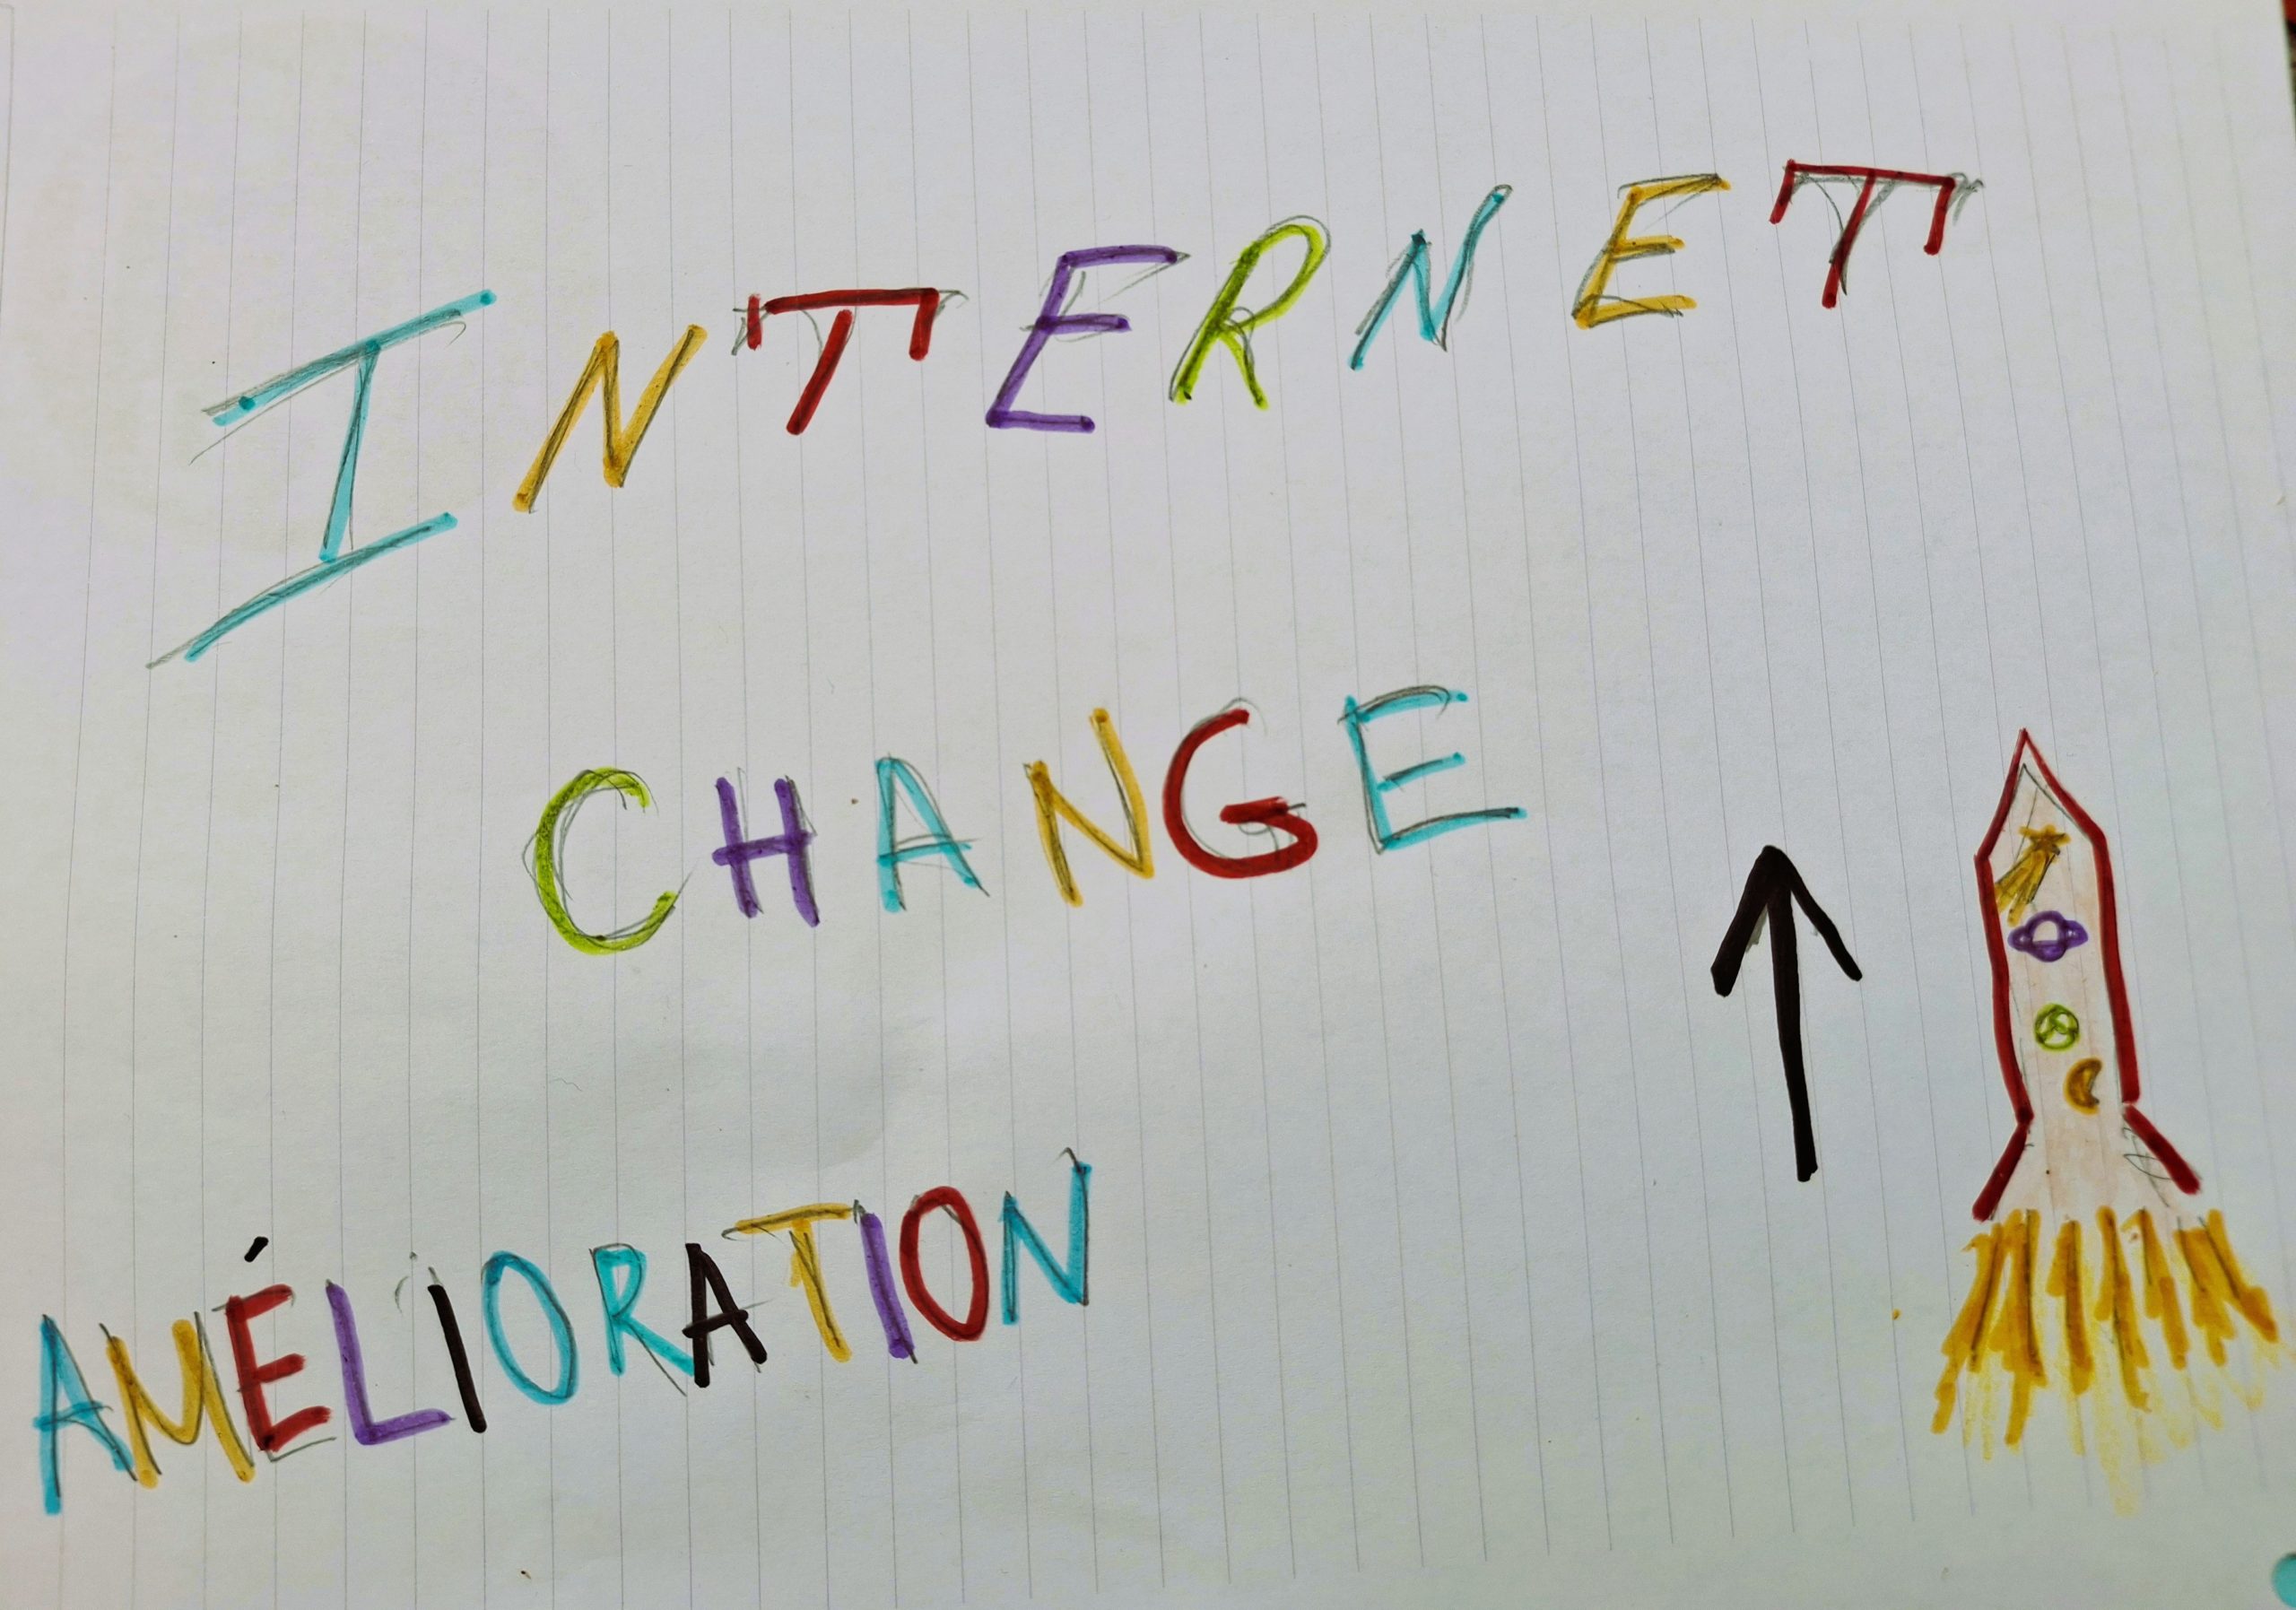 INTERNET
CHANGE
AMÉLIORATION